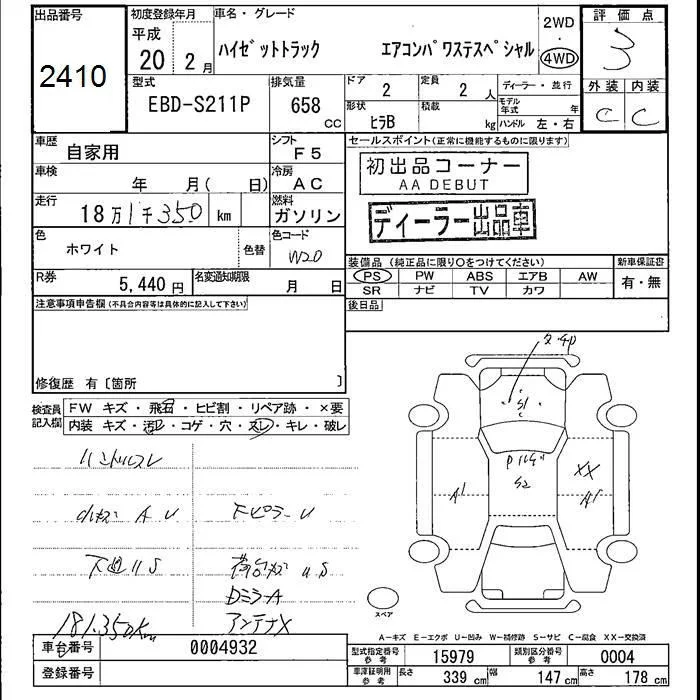 出品番号
2410
初度登録年月
平成
20 2月
車名・グレード
ハイゼットトラック エアコンパワステスペシャル
2WD
・
4WD
評価点
3
外装 内装
C C
型式
EBD-S211P
排気量
658
CC
ドア
2
定員
2 人
ディーラー・並行
形状
ヒラB
積載
kg
モデル年式 年
ハンドル 左・右
車歴
自家用
シフト
F5
車検
年 月( 日)
冷房
AC
走行
18万1千350 km
燃料
ガソリン
色
ホワイト
色替
色コード
W20
R券
5,440 円
名変通知期限
月 日
セールスポイント(正常に機能するものに限ります)
初出品コーナー
AA DEBUT
ディーラー出品車
装備品(純正品に限り〇をつけてください)
PS PW ABS エアB AW
SR ナビ TV カワ
新車保証書
有・無
後日品
注意事項申告欄(不具合内容等は具体的に記入して下さい)
修復歴 有〔箇所 〕
検査員記入欄
FW キズ・飛石・ヒビ割・リペア跡・×要
内装 キズ・汚レ・コゲ・穴・スレ・キレ・破レ
ハンドルスレ
A U
FピラーU
下廻リS
荷台 U S
DミラーA
181.350Km
アンテナX
S1
S2
A1
XX
A1
スペア
A-キズ E-エクボ U-凹み W-補修跡 S-サビ C-腐食 XX-交換済
車台番号
0004932
登録番号
型式指定番号
参考
15979
類別区分番号
参考
0004
車庫証明用
参考
長さ 339 cm 幅 147 cm 高さ 178 cm